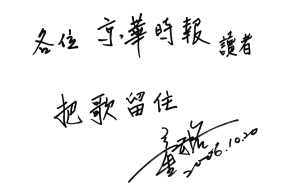 各位 京華時報 讀者
把歌留住
2006.10.20